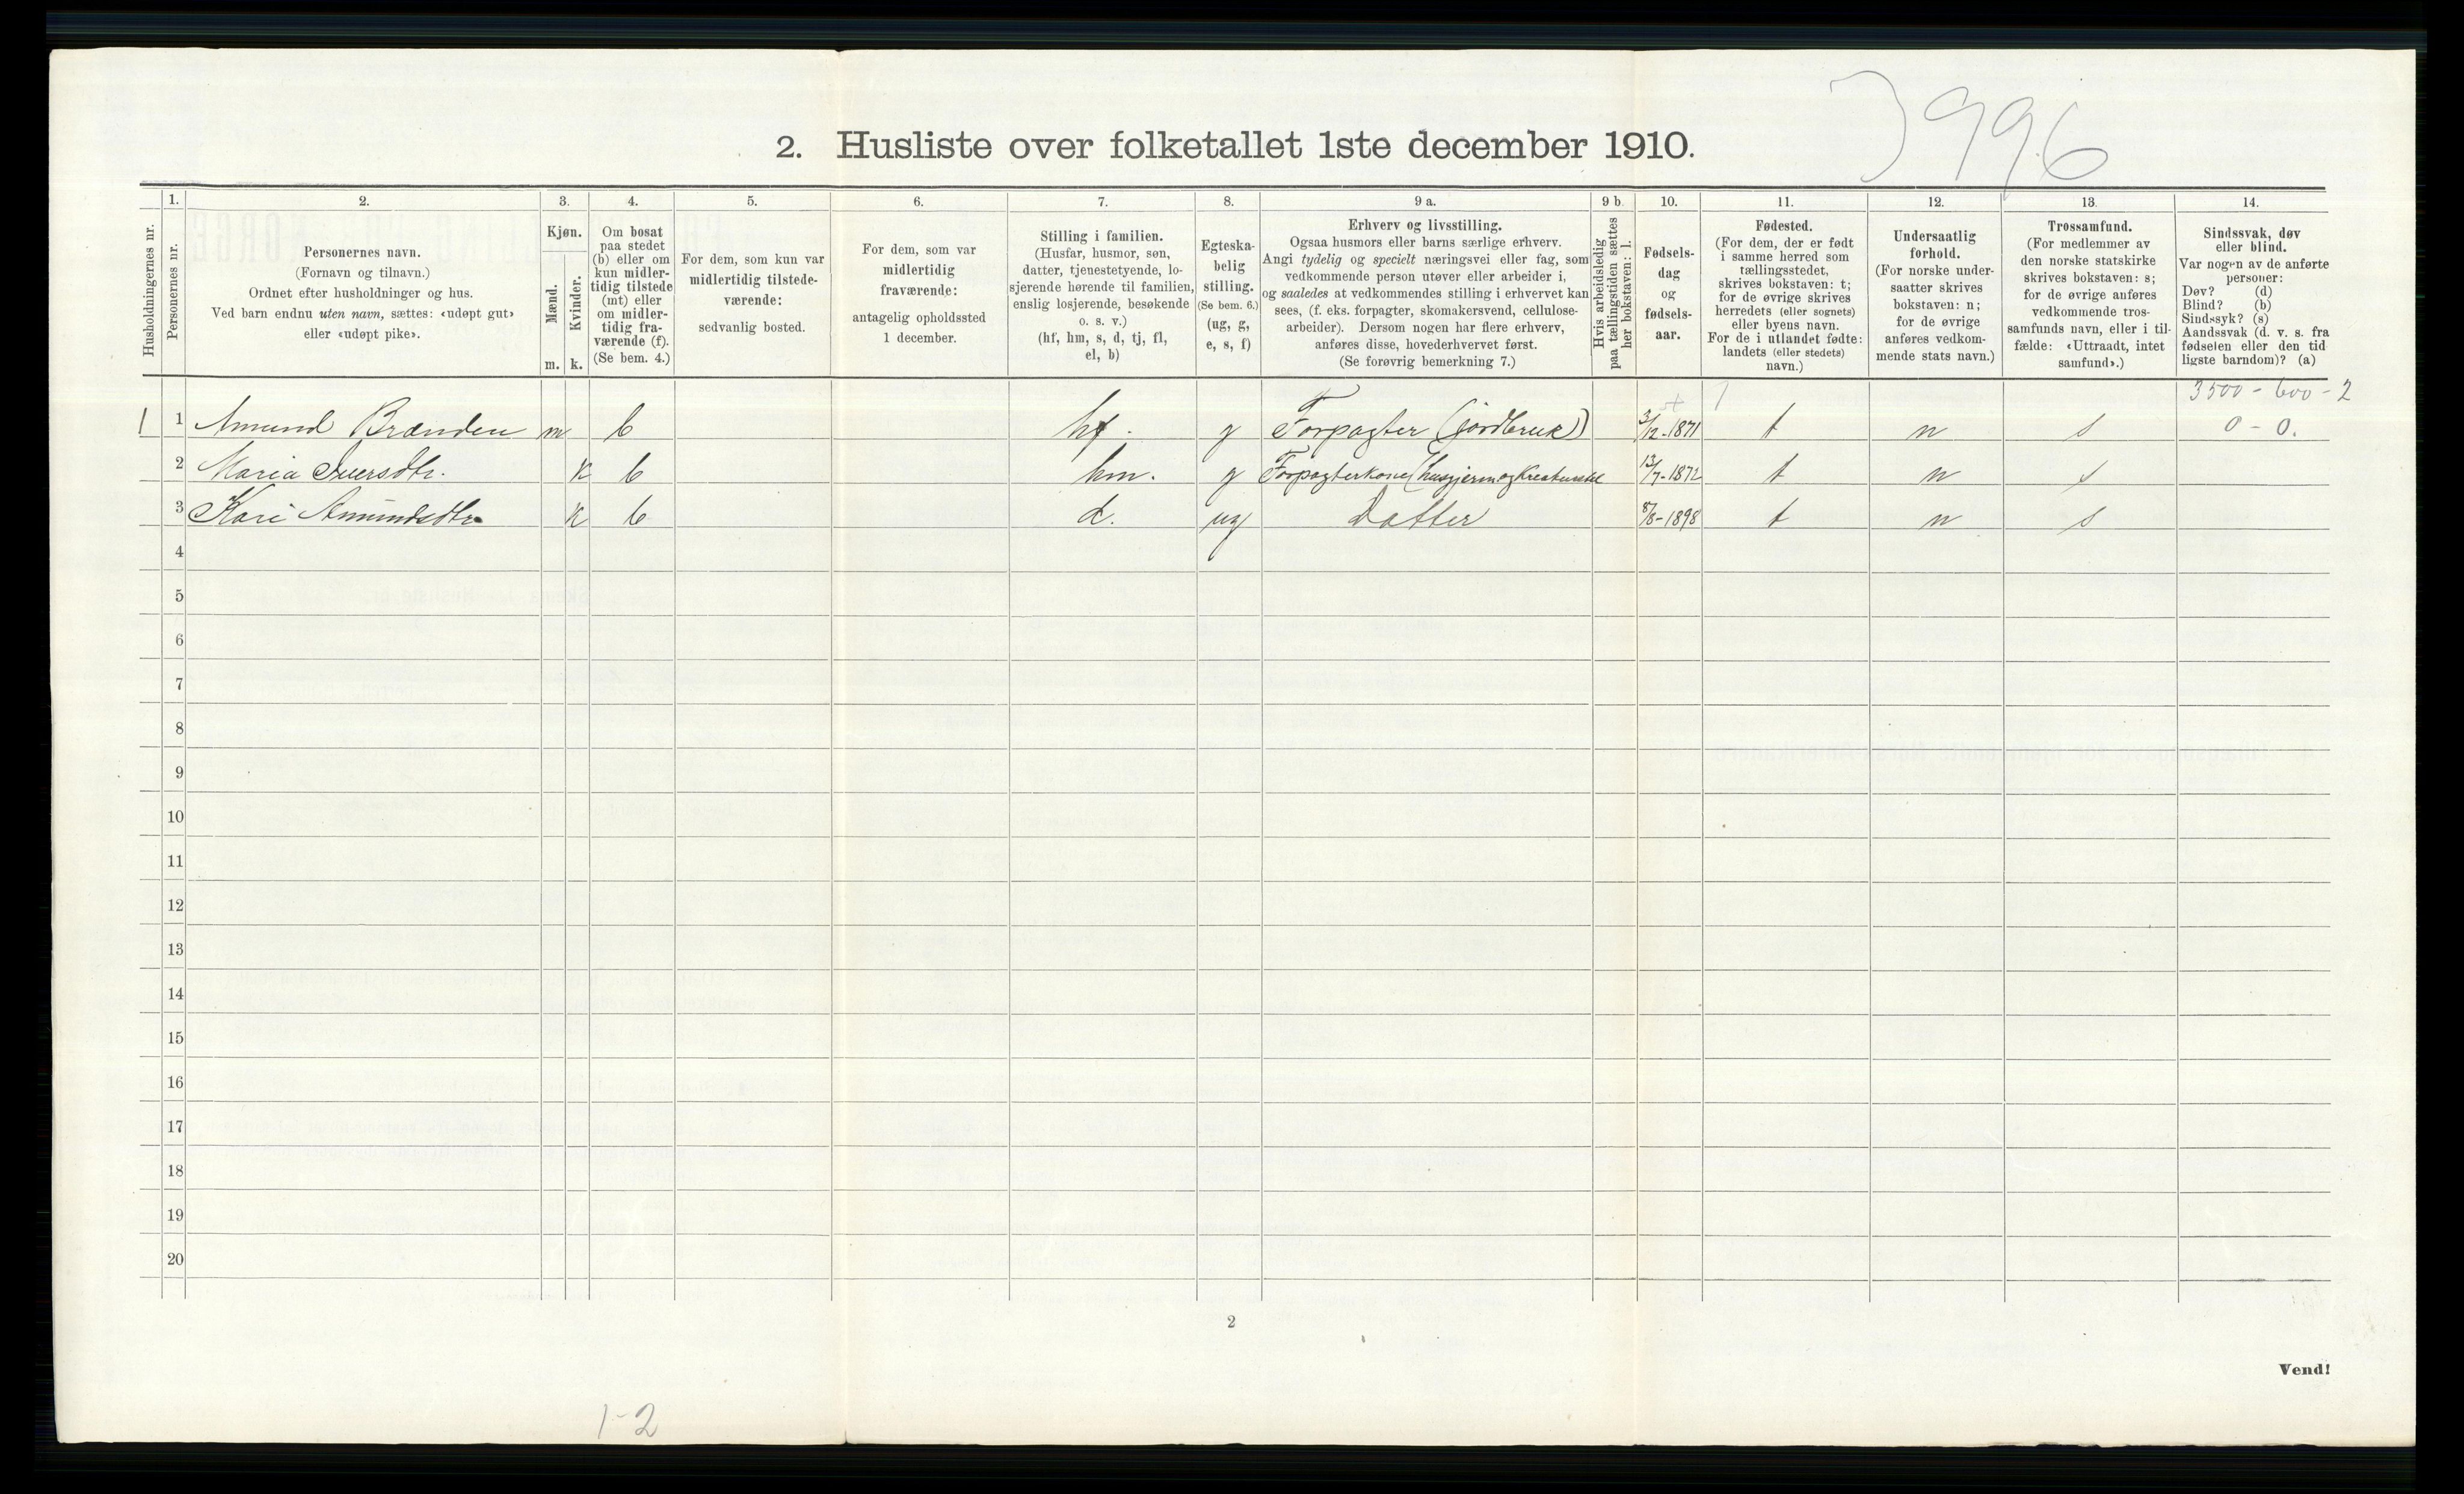 996
2. Husliste over folketallet 1ste december 1910.
Husholdningernes nr.
1.
Personernes nr.
2.
Personernes navn.
(Fornavn og tilnavn.)
Ordnet efter husholdninger og hus.
Ved barn endnu uten navn, sættes: «udøpt gut»
eller «udøpt pike».
3.
Kjøn.
Mænd.
Kvinder.
m. k.
4.
Om bosat
paa stedet
(b) eller om
kun midler-
tidig tilstede
(mt) eller
om midler-
tidig fra-
værende (f).
(Se bem. 4.)
5.
For dem, som kun var
midlertidig tilstede-
værende:
sedvanlig bosted.
6.
For dem, som var
midlertidig
fraværende:
antagelig opholdssted
1 december.
7.
Stilling i familien.
(Husfar, husmor, søn,
datter, tjenestetyende, lo-
sjerende hørende til familien,
enslig losjerende, besøkende
o. s. v.)
(hf, hm, s, d, tj, fl,
el, b)
8.
Egteska-
belig
stilling.
(Se bem. 6.)
(ug, g,
e, s, f)
9 a.
Erhverv og livsstilling.
Ogsaa husmors eller barns særlige erhverv.
Angi tydelig og specielt næringsvei eller fag, som
vedkommende person utøver eller arbeider i,
og saaledes at vedkommendes stilling i erhvervet kan
sees, (f. eks. forpagter, skomakersvend, cellulose-
arbeider). Dersom nogen har flere erhverv,
anføres disse, hovederhvervet først.
(Se forøvrig bemerkning 7.)
9 b.
Hvis arbeidsledig
paa tællingstiden sættes
her bokstaven: l.
10.
Fødsels-
dag
og
fødsels-
aar.
11.
Fødested.
(For dem, der er født
i samme herred som
tællingsstedet,
skrives bokstaven: t;
for de øvrige skrives
herredets (eller sognets)
eller byens navn.
For de i utlandet fødte:
landets (eller stedets)
navn.)
12.
Undersaatlig
forhold.
(For norske under-
saatter skrives
bokstaven: n;
for de øvrige
anføres vedkom-
mende stats navn.)
13.
Trossamfund.
(For medlemmer av
den norske statskirke
skrives bokstaven: s;
for de øvrige anføres
vedkommende tros-
samfunds navn, eller i til-
fælde: «Uttraadt, intet
samfund».)
14.
Sindssvak, døv
eller blind.
Var nogen av de anførte
personer:
Døv? (d)
Blind? (b)
Sindssyk? (s)
Aandssvak (d. v. s. fra
fødselen eller den tid
ligste barndom)? (a)
3500 - 600 - 2
1 1 Amund Brænden m b hf. g Forpagter (jordbruk) 3/12-1871 t n s 0 - 0.
2 Maria Iversdtr. k b hm. g Forpagterkone (husgjerning 13/7-1872 t n s
3 Kari Amundsdtr k b d. ug Datter 8/8-1898 t n s
4
5
6
7
8
9
10
11
12
13
14
15
16
17
18
19
20
2
Vend!
1-2